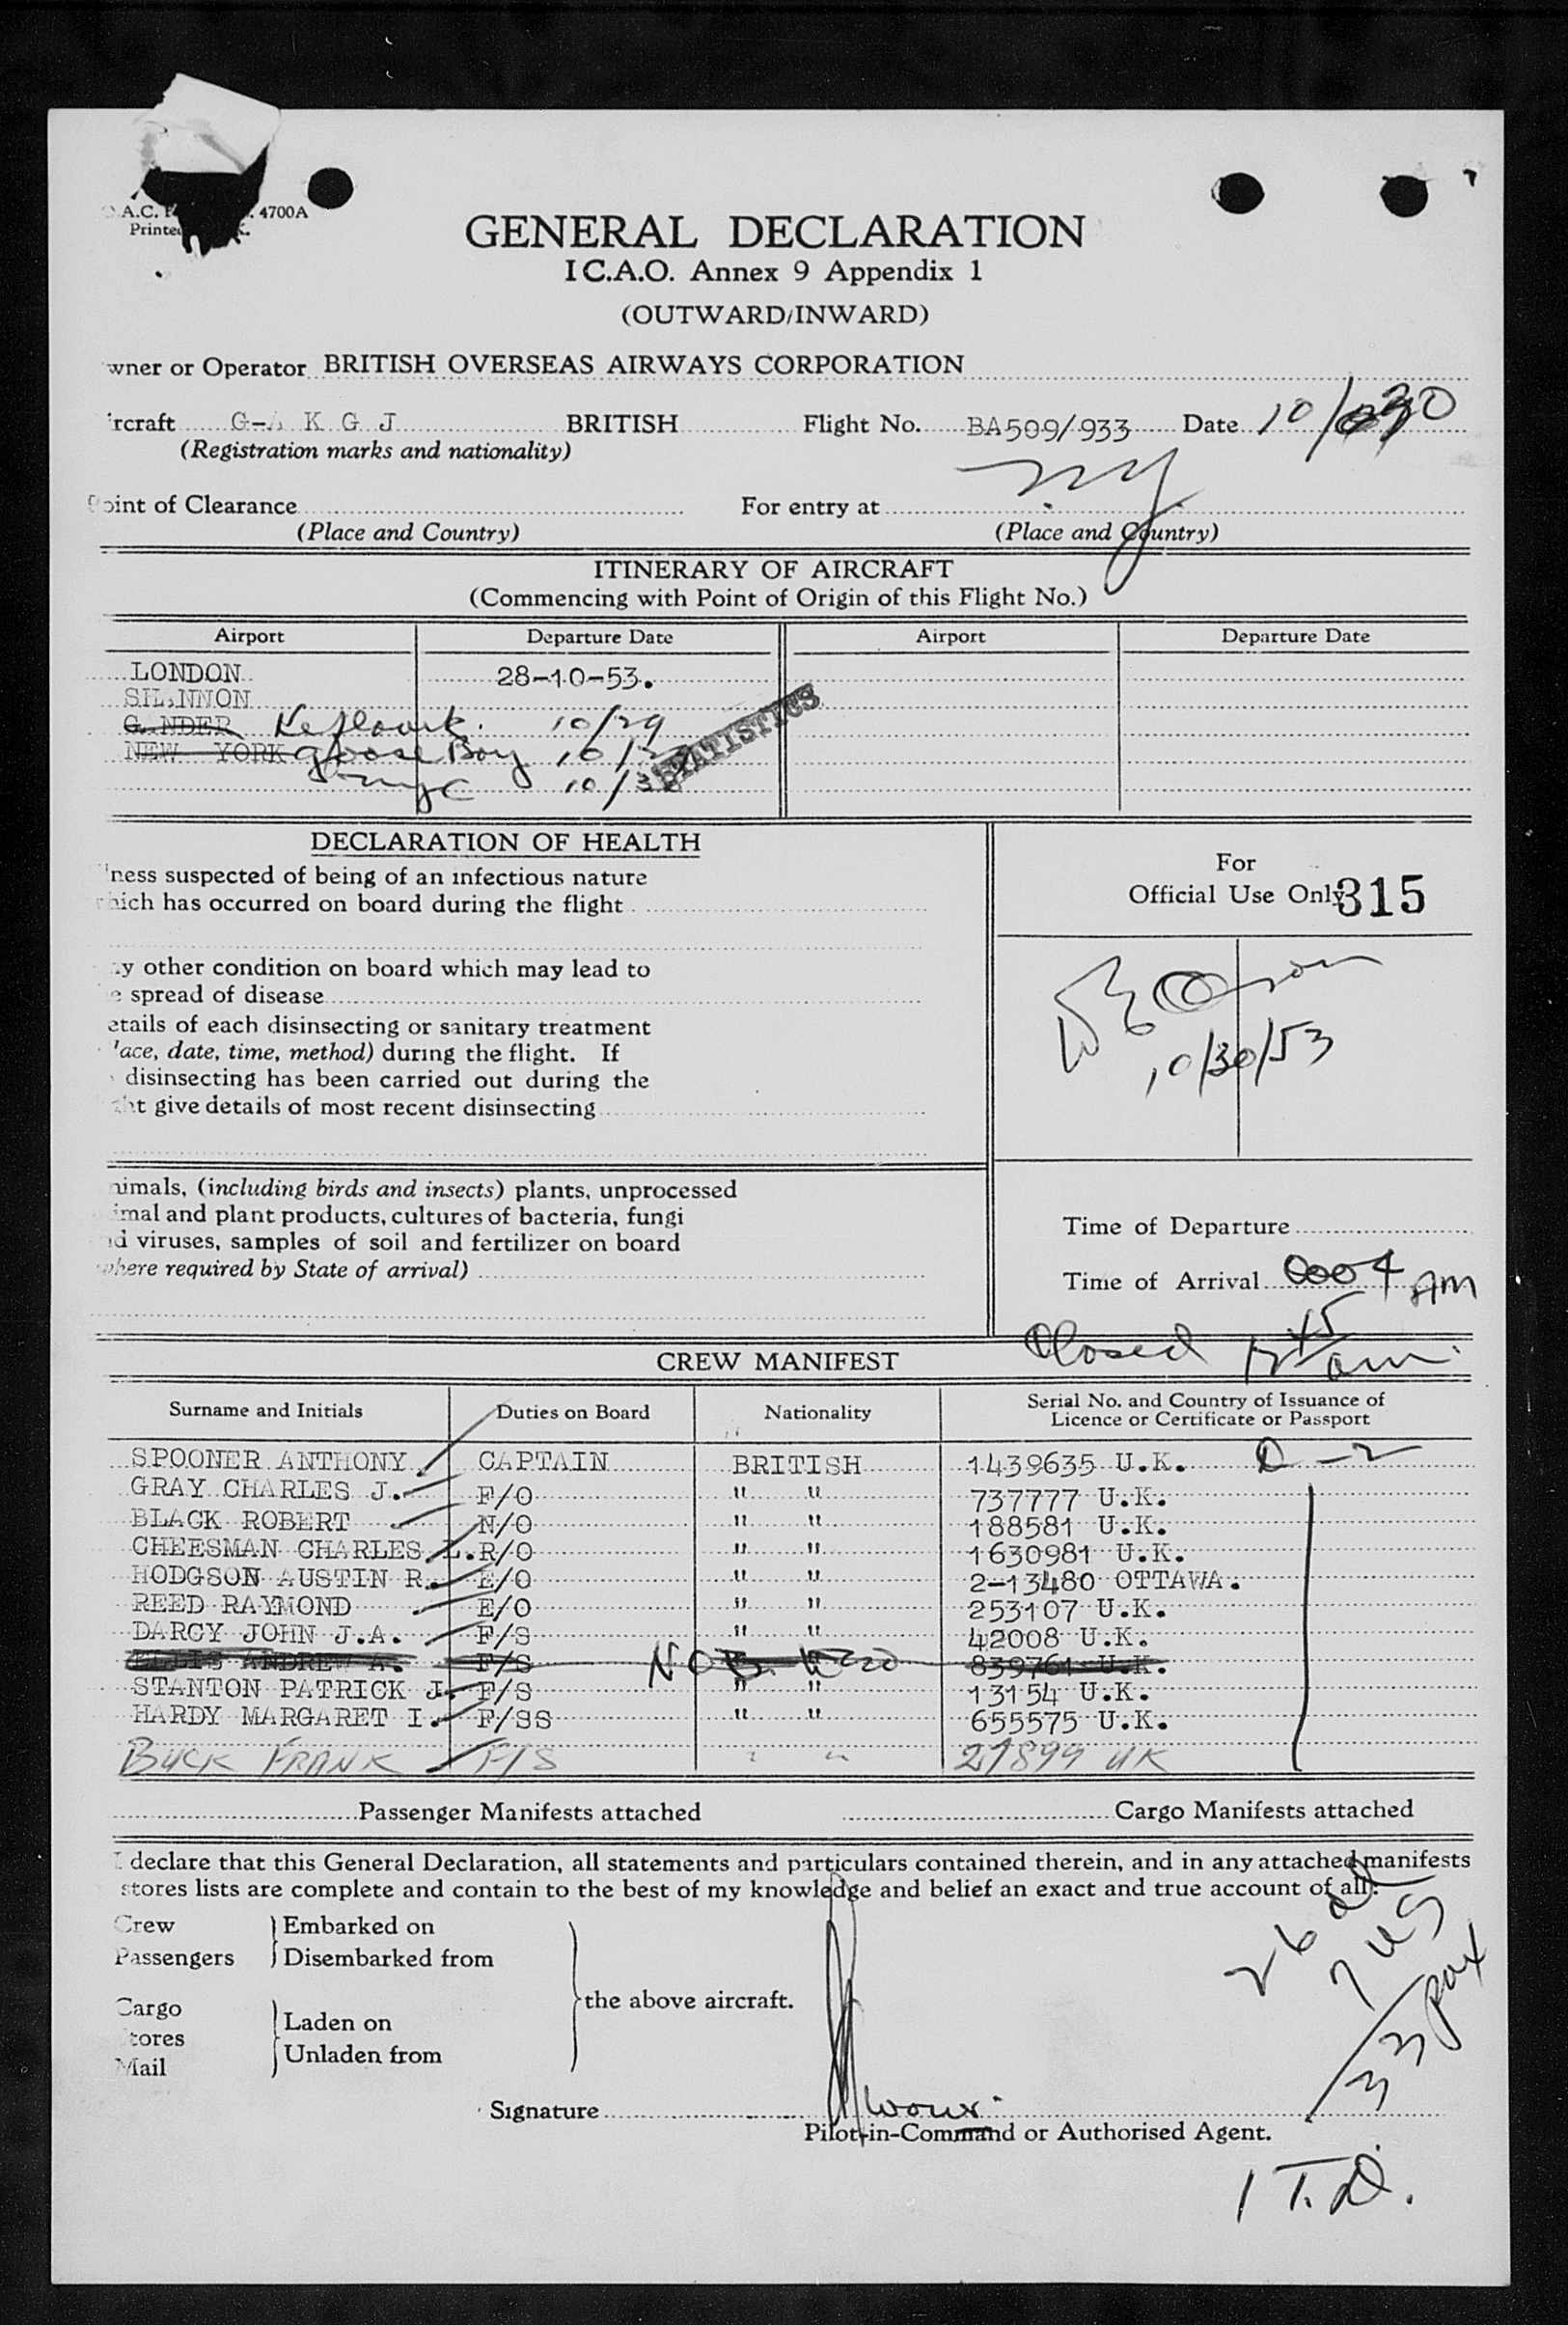 4700A
GENERAL DECLARATION
I C.A.O. Annex 9 Appendix 1
(OUTWARD/INWARD)
wner or Operator BRITISH OVERSEAS AIRWAYS CORPORATION
rcraft G-A K G J BRITISH Flight No. BA509/933 Date 10/30
(Registration marks and nationality)
oint of Clearance For entry at ny
(Place and Country) (Place and Country)
ITINERARY OF AIRCRAFT
(Commencing with Point of Origin of this Flight No.)
Airport Departure Date Airport Departure Date
LONDON 28-10-53.
SHANNON
GANDER Keflavik. 10/29
NEW YORK Goose Bay 10/29 STATISTICS
nyc 10/30
DECLARATION OF HEALTH
lness suspected of being of an infectious nature
hich has occurred on board during the flight
y other condition on board which may lead to
e spread of disease
etails of each disinsecting or sanitary treatment
lace, date, time, method) during the flight. If
disinsecting has been carried out during the
ght give details of most recent disinsecting
For
Official Use Only 315
10/30/53
nimals, (including birds and insects) plants, unprocessed
imal and plant products, cultures of bacteria, fungi
d viruses, samples of soil and fertilizer on board
where required by State of arrival)
Time of Departure
Time of Arrival 0004 AM
Closed 12 45 am
CREW MANIFEST
Surname and Initials Duties on Board Nationality Serial No. and Country of Issuance of
Licence or Certificate or Passport
SPOONER ANTHONY CAPTAIN BRITISH 1439635 U.K. D-2
GRAY CHARLES J. F/O " " 737777 U.K.
BLACK ROBERT N/O " " 188581 U.K.
CHEESMAN CHARLES L. R/O " " 1630981 U.K.
HODGSON AUSTIN R. E/O " " 2-13480 OTTAWA.
REED RAYMOND E/O " " 253107 U.K.
DARCY JOHN J.A. F/S " " 42008 U.K.
ELLIS ANDREW A. F/S 839761 U.K.
STANTON PATRICK J. F/S " " 13154 U.K.
HARDY MARGARET I. F/SS " " 655575 U.K.
BUCK FRANK F/S " " 27899 UK
Passenger Manifests attached Cargo Manifests attached
I declare that this General Declaration, all statements and particulars contained therein, and in any attached manifests
stores lists are complete and contain to the best of my knowledge and belief an exact and true account of all:
Crew Embarked on
Passengers Disembarked from
the above aircraft.
Cargo Laden on
tores Unladen from
Mail
26 al
7 us
33 pax
Signature
Pilot-in-Command or Authorised Agent.
1 T.D.